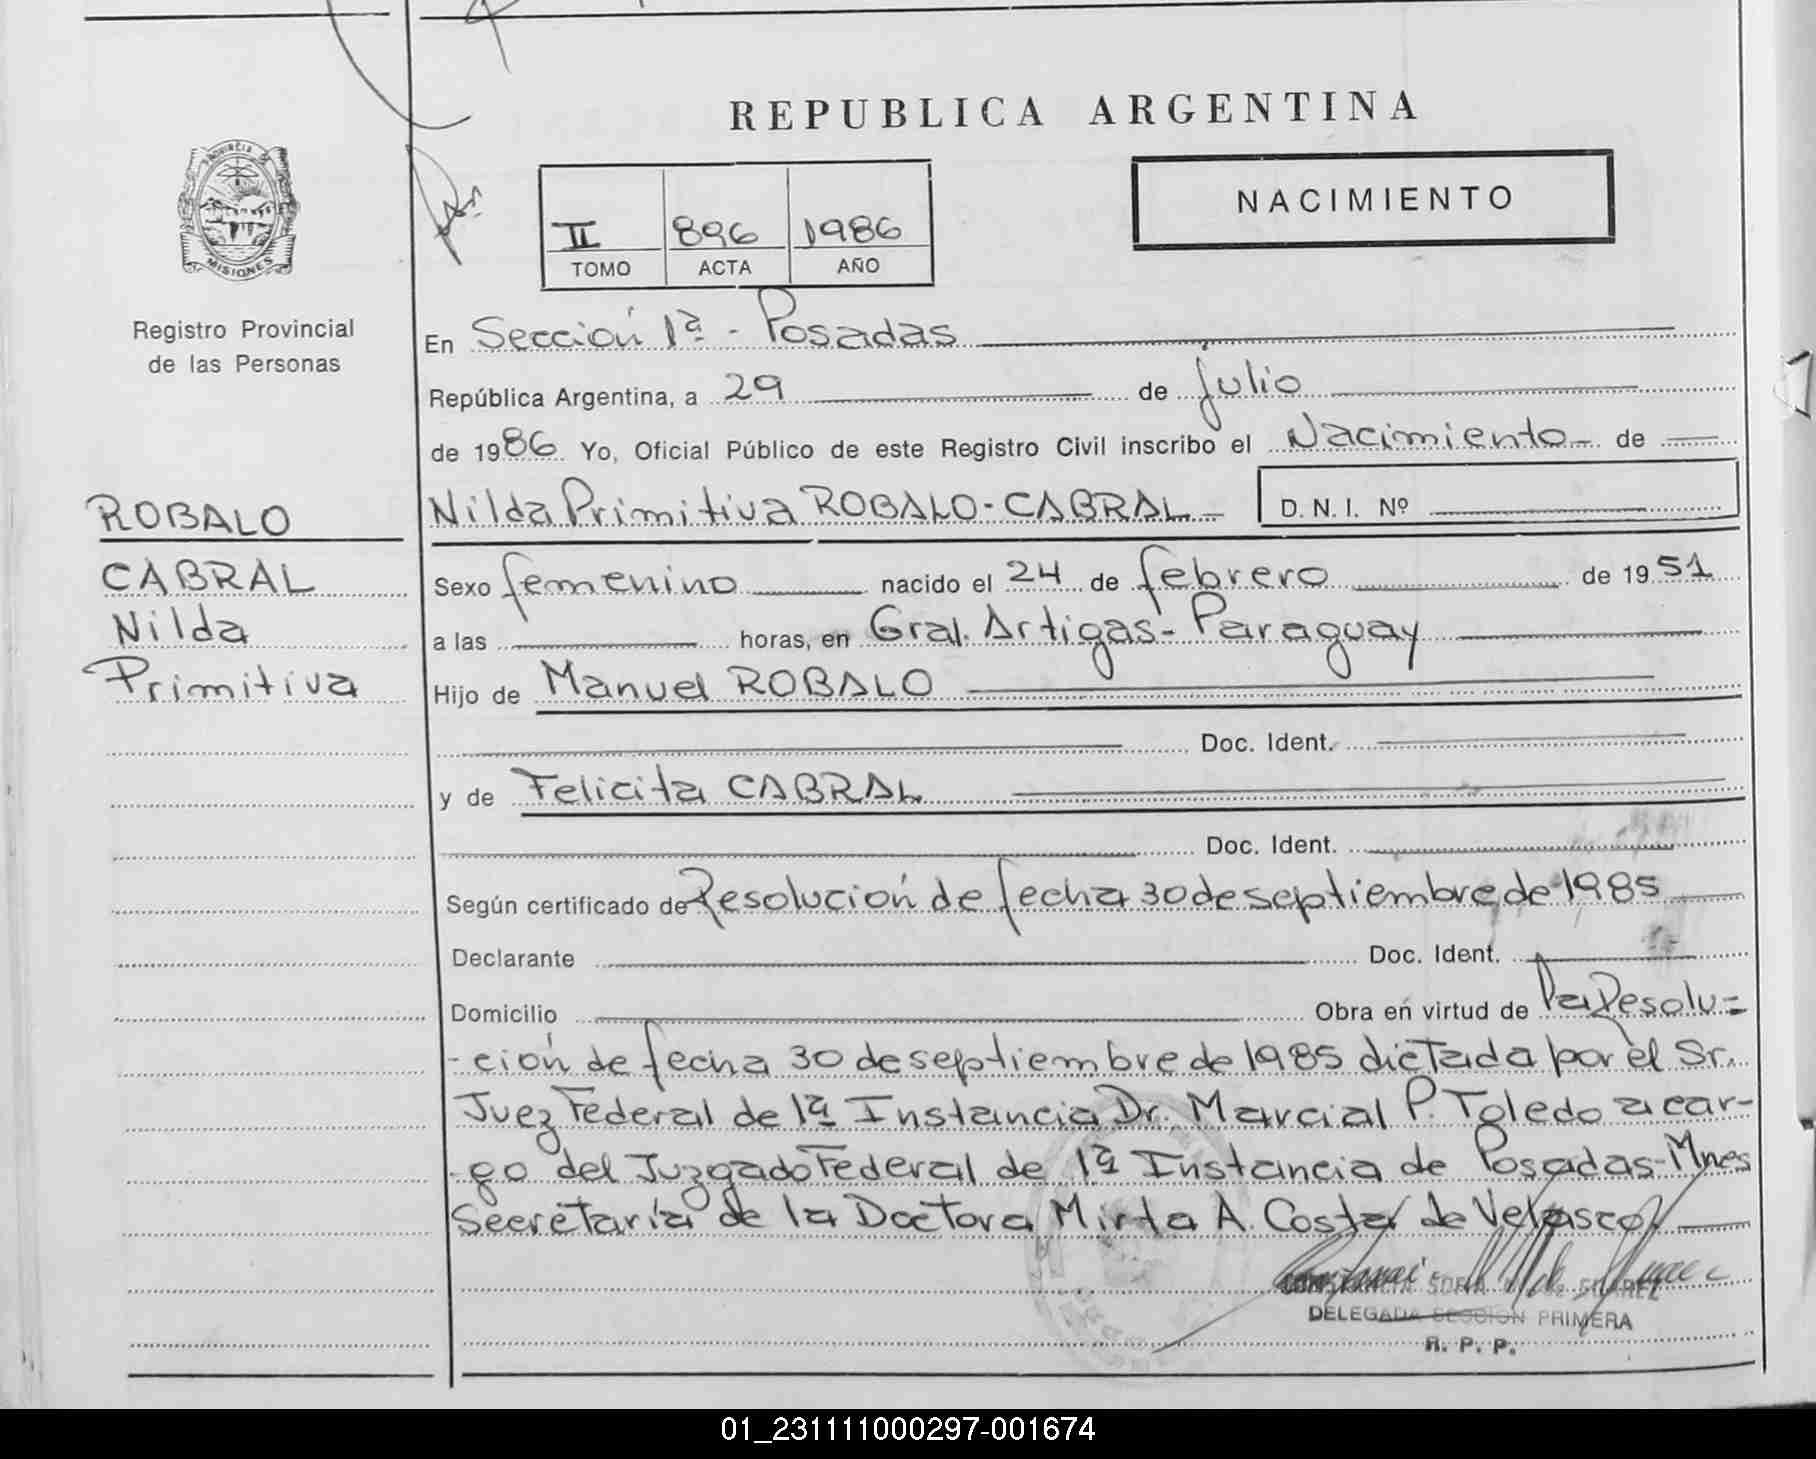 REPUBLICA ARGENTINA
PROVINCIA DE
MISIONES
Registro Provincial
de las Personas
NACIMIENTO
II 896 1986
TOMO ACTA AÑO
En Sección 1ª - Posadas
República Argentina, a 29 de julio
de 1986 Yo, Oficial Público de este Registro Civil inscribo el Nacimiento - de
ROBALO
CABRAL
Nilda
Primitiva
Nilda Primitiva ROBALO - CABRAL - D. N. I. Nº
Sexo femenino nacido el 24 de febrero de 1951
a las horas, en Gral. Artigas - Paraguay
Hijo de Manuel ROBALO
Doc. Ident.
y de Felicita CABRAL
Doc. Ident.
Según certificado de Resolución de fecha 30 de septiembre de 1985
Declarante Doc. Ident.
Domicilio Obra en virtud de la Resolu=
-ción de fecha 30 de septiembre de 1985 dictada por el Sr.
Juez Federal de 1ª Instancia Dr. Marcial P. Toledo a car-
-go del Juzgado Federal de 1ª Instancia de Posadas - Mnes
Secretaría de la Doctora Mirta A. Costa de Velasco
CONSTANCIA SOFIA DE SUAREZ
DELEGADA SECCION PRIMERA
R. P. P.
01_231111000297-001674